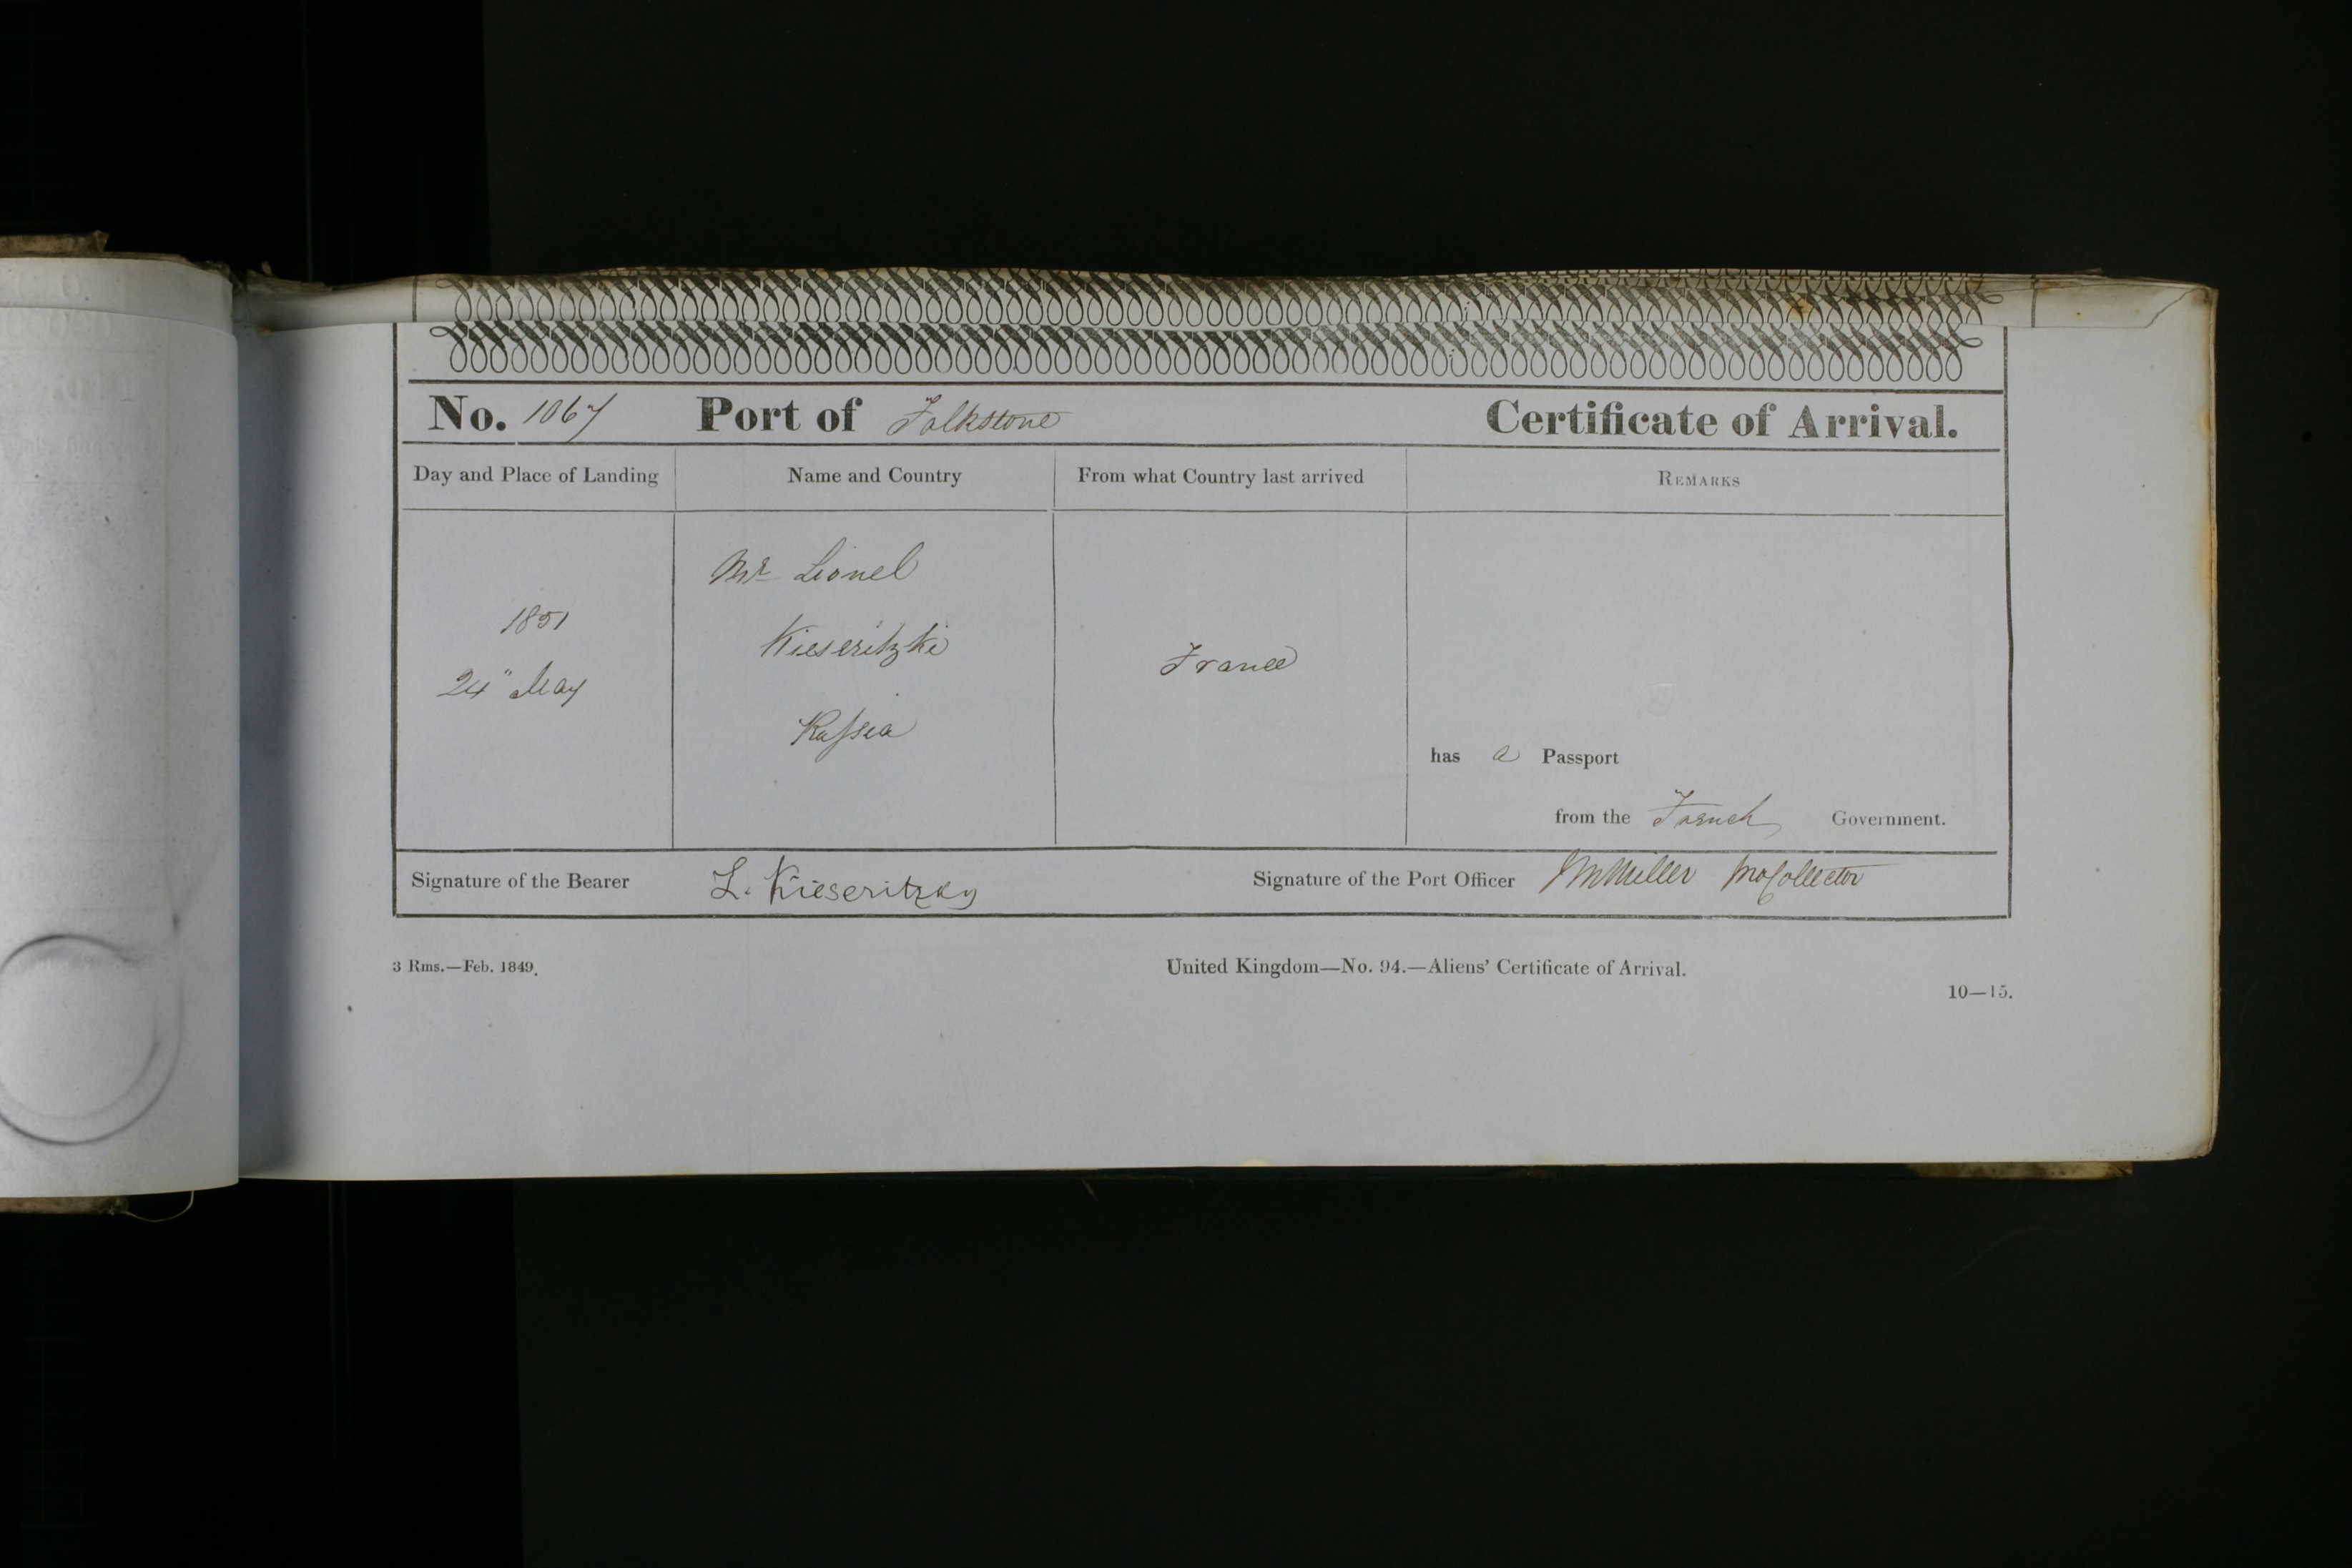 No. 1067 Port of Folkstone Certificate of Arrival.
Day and Place of Landing Name and Country From what Country last arrived REMARKS
Mr Lionel
1851
Kieseritzki
24" May
France
Russia
has a Passport
from the French Government.
Signature of the Bearer L. Kieseritzky Signature of the Port Officer Miller pro Collector
3 Rms.—Feb. 1849. United Kingdom—No. 94.—Aliens' Certificate of Arrival.
10—15.